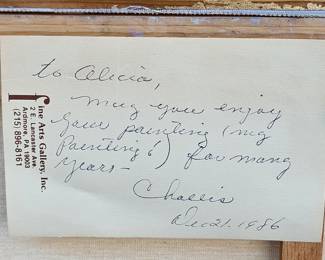 to Alicia,
may you enjoy
your painting (my
painting!) for many
years—
Challis
Dec 21, 1986
Fine Arts Gallery, Inc.
2 E. Lancaster Ave.
Ardmore, PA 19003
(215) 896-8161